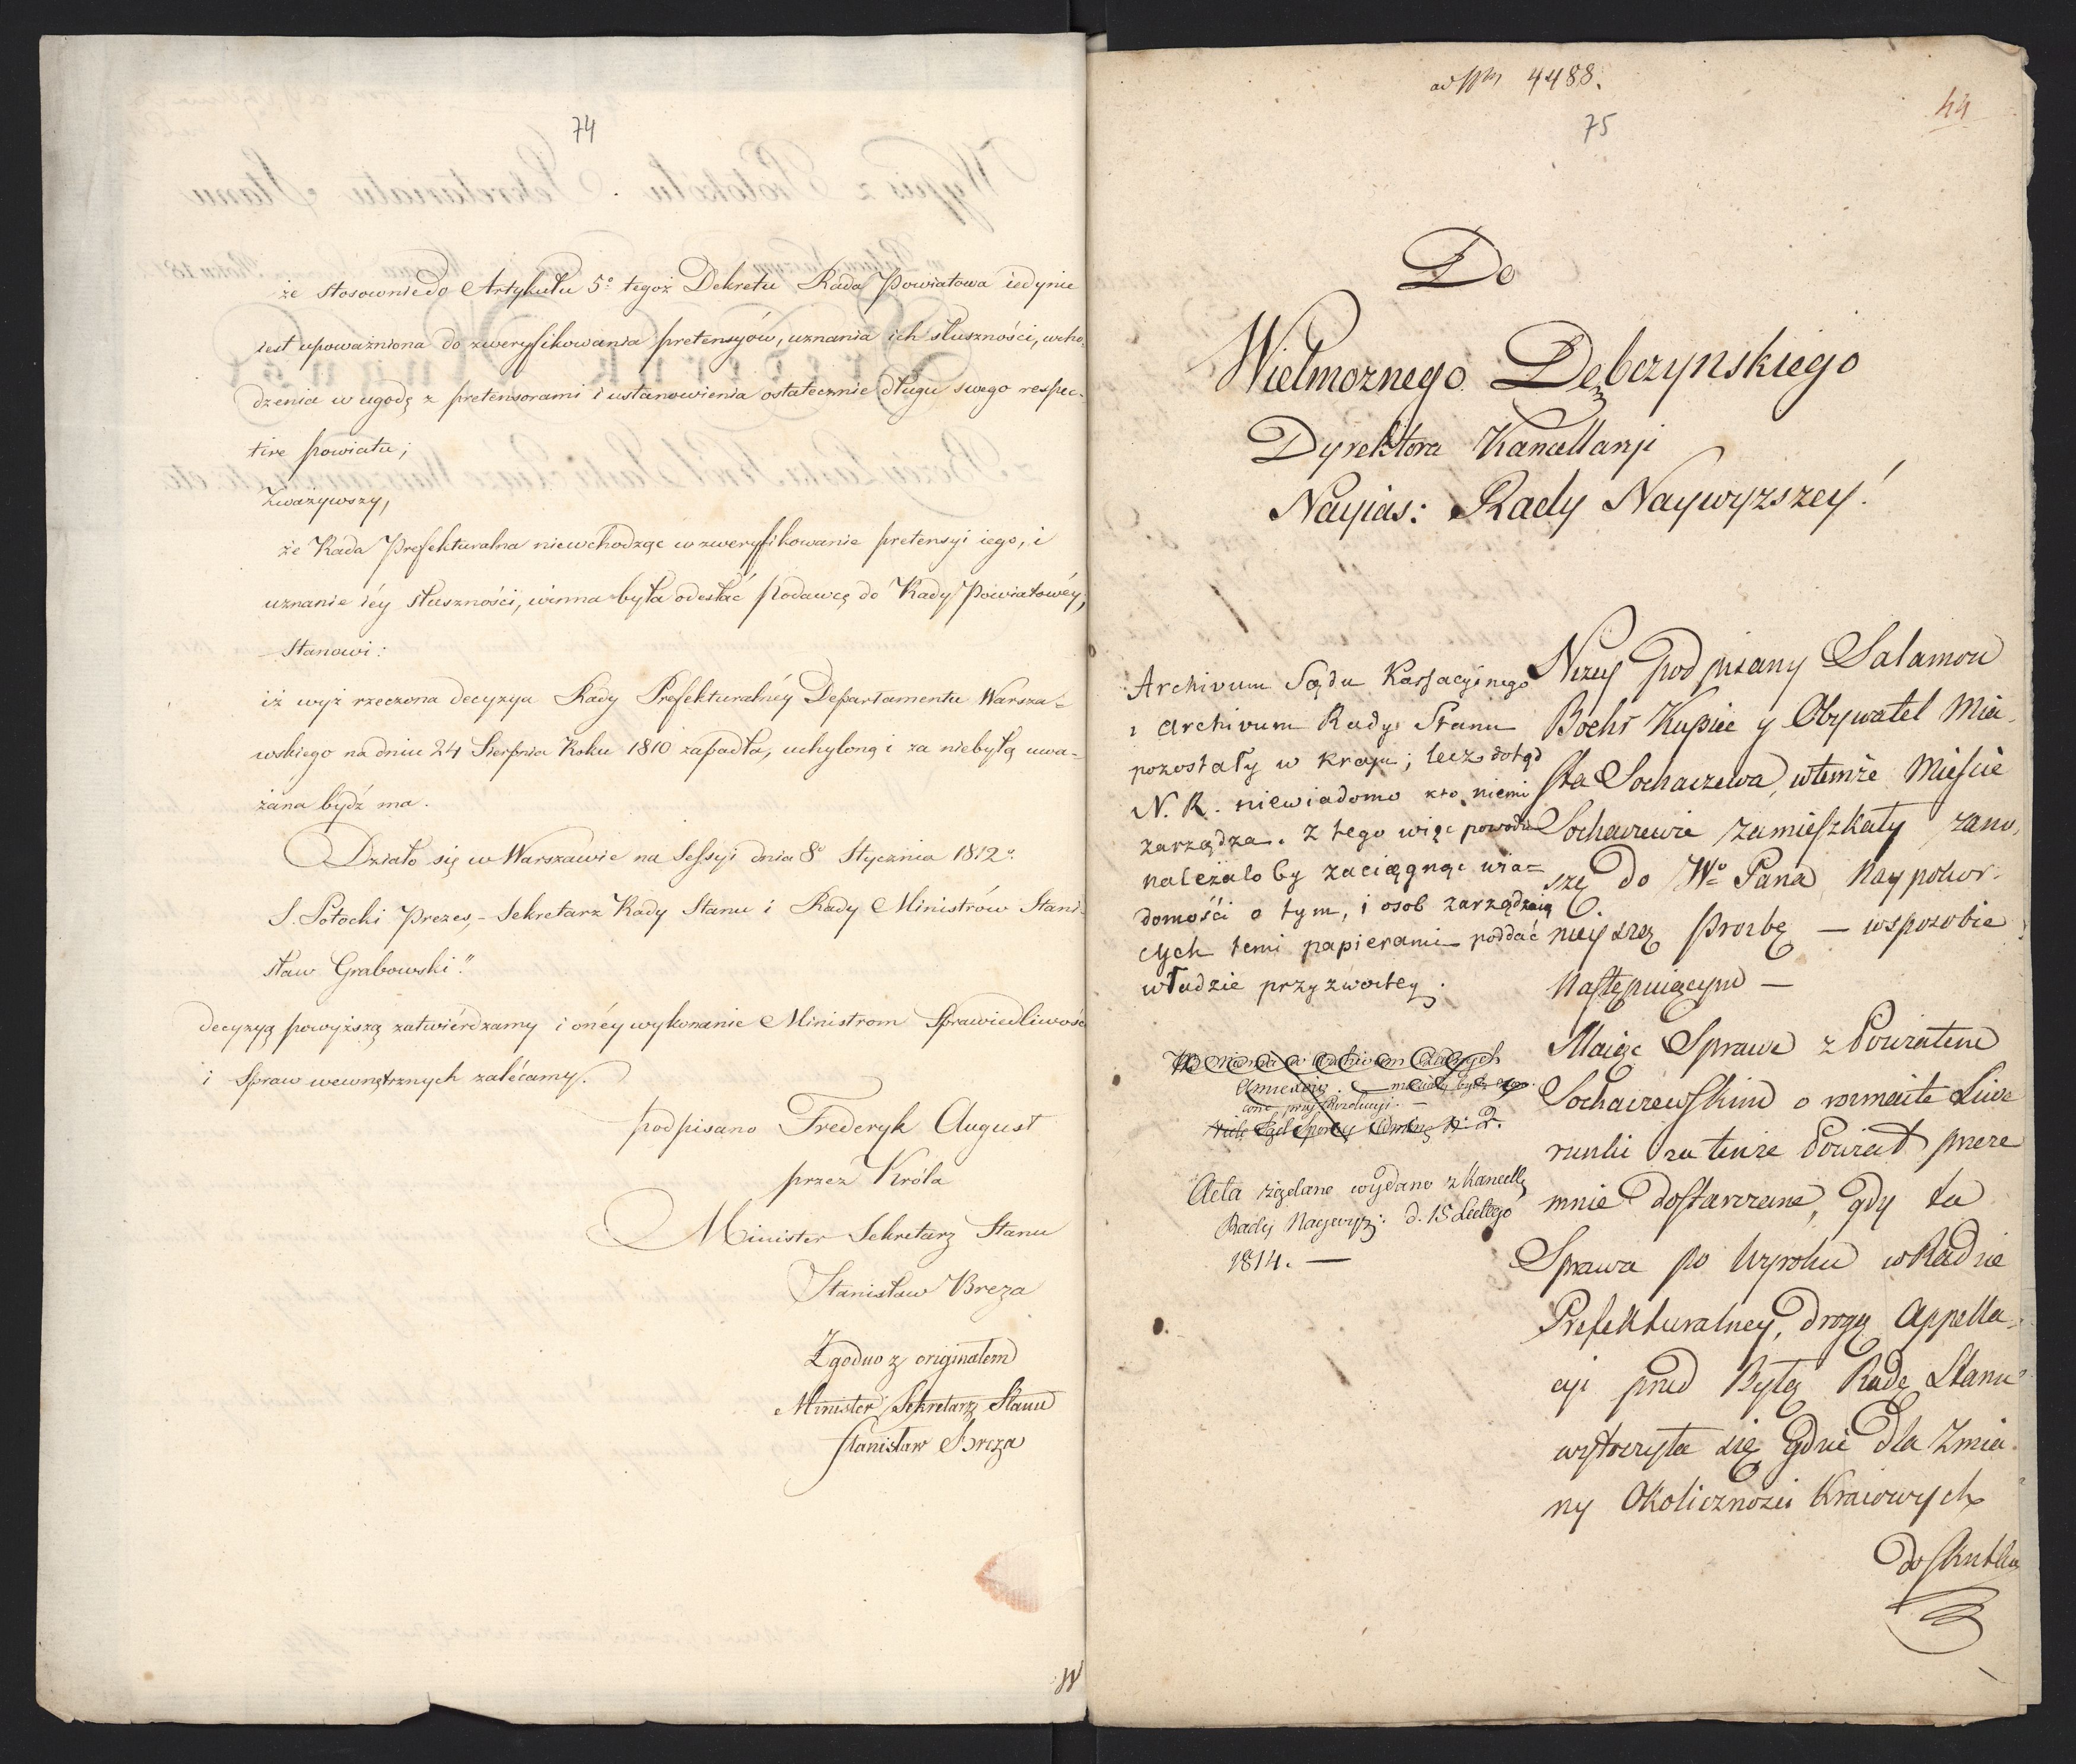 74
że stosownie do Artykułu 5º tegoż Dekretu Rada Powiatowa iedynie
iest upoważniona do zweryfikowania pretensyów, uznania ich słuszności, wcho-
dzenia w ugodę z pretensorami i ustanowienia ostatecznie długu swego respec-
tive powiatu;
Zważywszy,
że Rada Prefekturalna niewchodząc w zweryfikowanie pretensyi iego, i
uznanie iéy słuszności, winna była odesłać podawcę do Rady Powiatowéy,
Stanowi:
iż wyż rzeczona decyzya Rady Prefekturalnéy Departamentu Warsza-
wskiego na dniu 24 Sierpnia Roku 1810 zapadła, uchyloną i za niebyłą uwa-
żana bydź ma.
Działo się w Warszawie na Sessyi dnia 8º Stycznia 1812º
S. Potocki Prezes, - Sekretarz Rady Stanu i Rady Ministrów Stani-
sław Grabowski."
decyzyą powyższą zatwiérdzamy i onéy wykonanie Ministrom Sprawiedliwośc
i Spraw wewnętrznych zalécamy.
podpisano Frederyk August
przez Króla
Minister Sekretarz Stanu
Stanisław Breza
Zgodno z originałem
Minister Sekretarz Stanu
Stanisław Breza
4488.
75
44
Do
Wielmoznego Dębczynskiego
Dyrektora Kancellaryi
Nayias: Rady Naywyzszey!
Archivum Sądu Kassacyinego
i Archivum Rady Stanu
pozostały w kraju; lecz dotąd
N. R. niewiadomo kto niemi
zarządza. Z tego więc powodu
należało by zaciągnąc wia-
domości o tym, i osob zarządzaią
cych temi papierami poddać
władzie przyzwoitey.
Acta ządane wydano z Kancell
Rady Naywyż: d. 15 Lutego
1814. —
Nizey Podpisany Salamon
Bochr Kupiec y Obywatel Mia-
sta Sochaczewa, wtemże Mieście
Sochaczewie zamieszkały zano,
szę do Wº Pana naypokor-
nieyszą Prozbę — wsposobie
następuiącym —
Maiąc Sprawę z Powiatem
Sochaczewskim o rozmaite Liwe
runki za tenże Powiat przeze
mnie dostarczane, gdy ta
Sprawa po Wyroku w Radzie
Prefekturalney, drogą Appella-
cyi przed Byłą Radę Stanu
wytoczyła się gdzie dla Zmia-
ny Okoliczności Kraiowych
do skutku